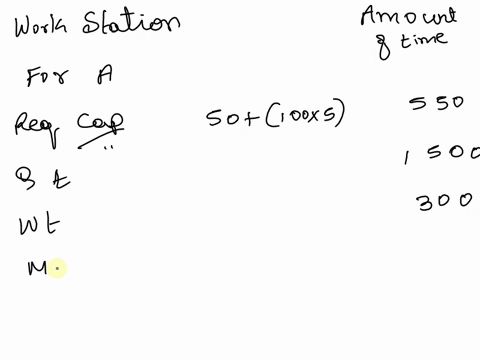 Work Station Amount of time
For A
Req Cap 50+(100x5) 550
Q t 1 500
Wt 300
M.